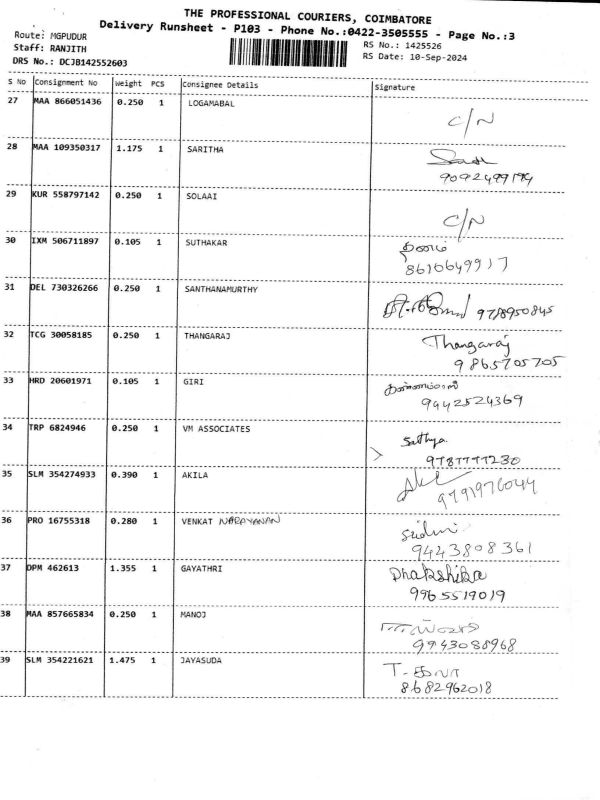 THE PROFESSIONAL COURIERS, COIMBATORE
Delivery Runsheet - P103 - Phone No.:0422-3505555 - Page No.:3
Route: MGPUDUR
Staff: RANJITH
RS No.: 1425526
DRS No.: DCJB142552603
RS Date: 10-Sep-2024
S No Consignment No weight PCS Consignee Details Signature
27 MAA 866051436 0.250 1 LOGAMABAL C/N
28 MAA 109350317 1.175 1 SARITHA
9092499194
29 KUR 558797142 0.250 1 SOLAAI C/N
30 IXM 506711897 0.105 1 SUTHAKAR
8610649917
31 DEL 730326266 0.250 1 SANTHANAMURTHY
978950845
32 TCG 30058185 0.250 1 THANGARAJ Thangaraj
9865705705
33 HRD 20601971 0.105 1 GIRI
9442524369
34 TRP 6824946 0.250 1 VM ASSOCIATES Sathya
9787777230
35 SLM 354274933 0.390 1 AKILA
9791976044
36 PRO 16755318 0.280 1 VENKAT NARAYANAN
9443808361
37 DPM 462613 1.355 1 GAYATHRI Dhakshika
9965519019
38 MAA 857665834 0.250 1 MANOJ
9943088968
39 SLM 354221621 1.475 1 JAYASUDA
8682962018